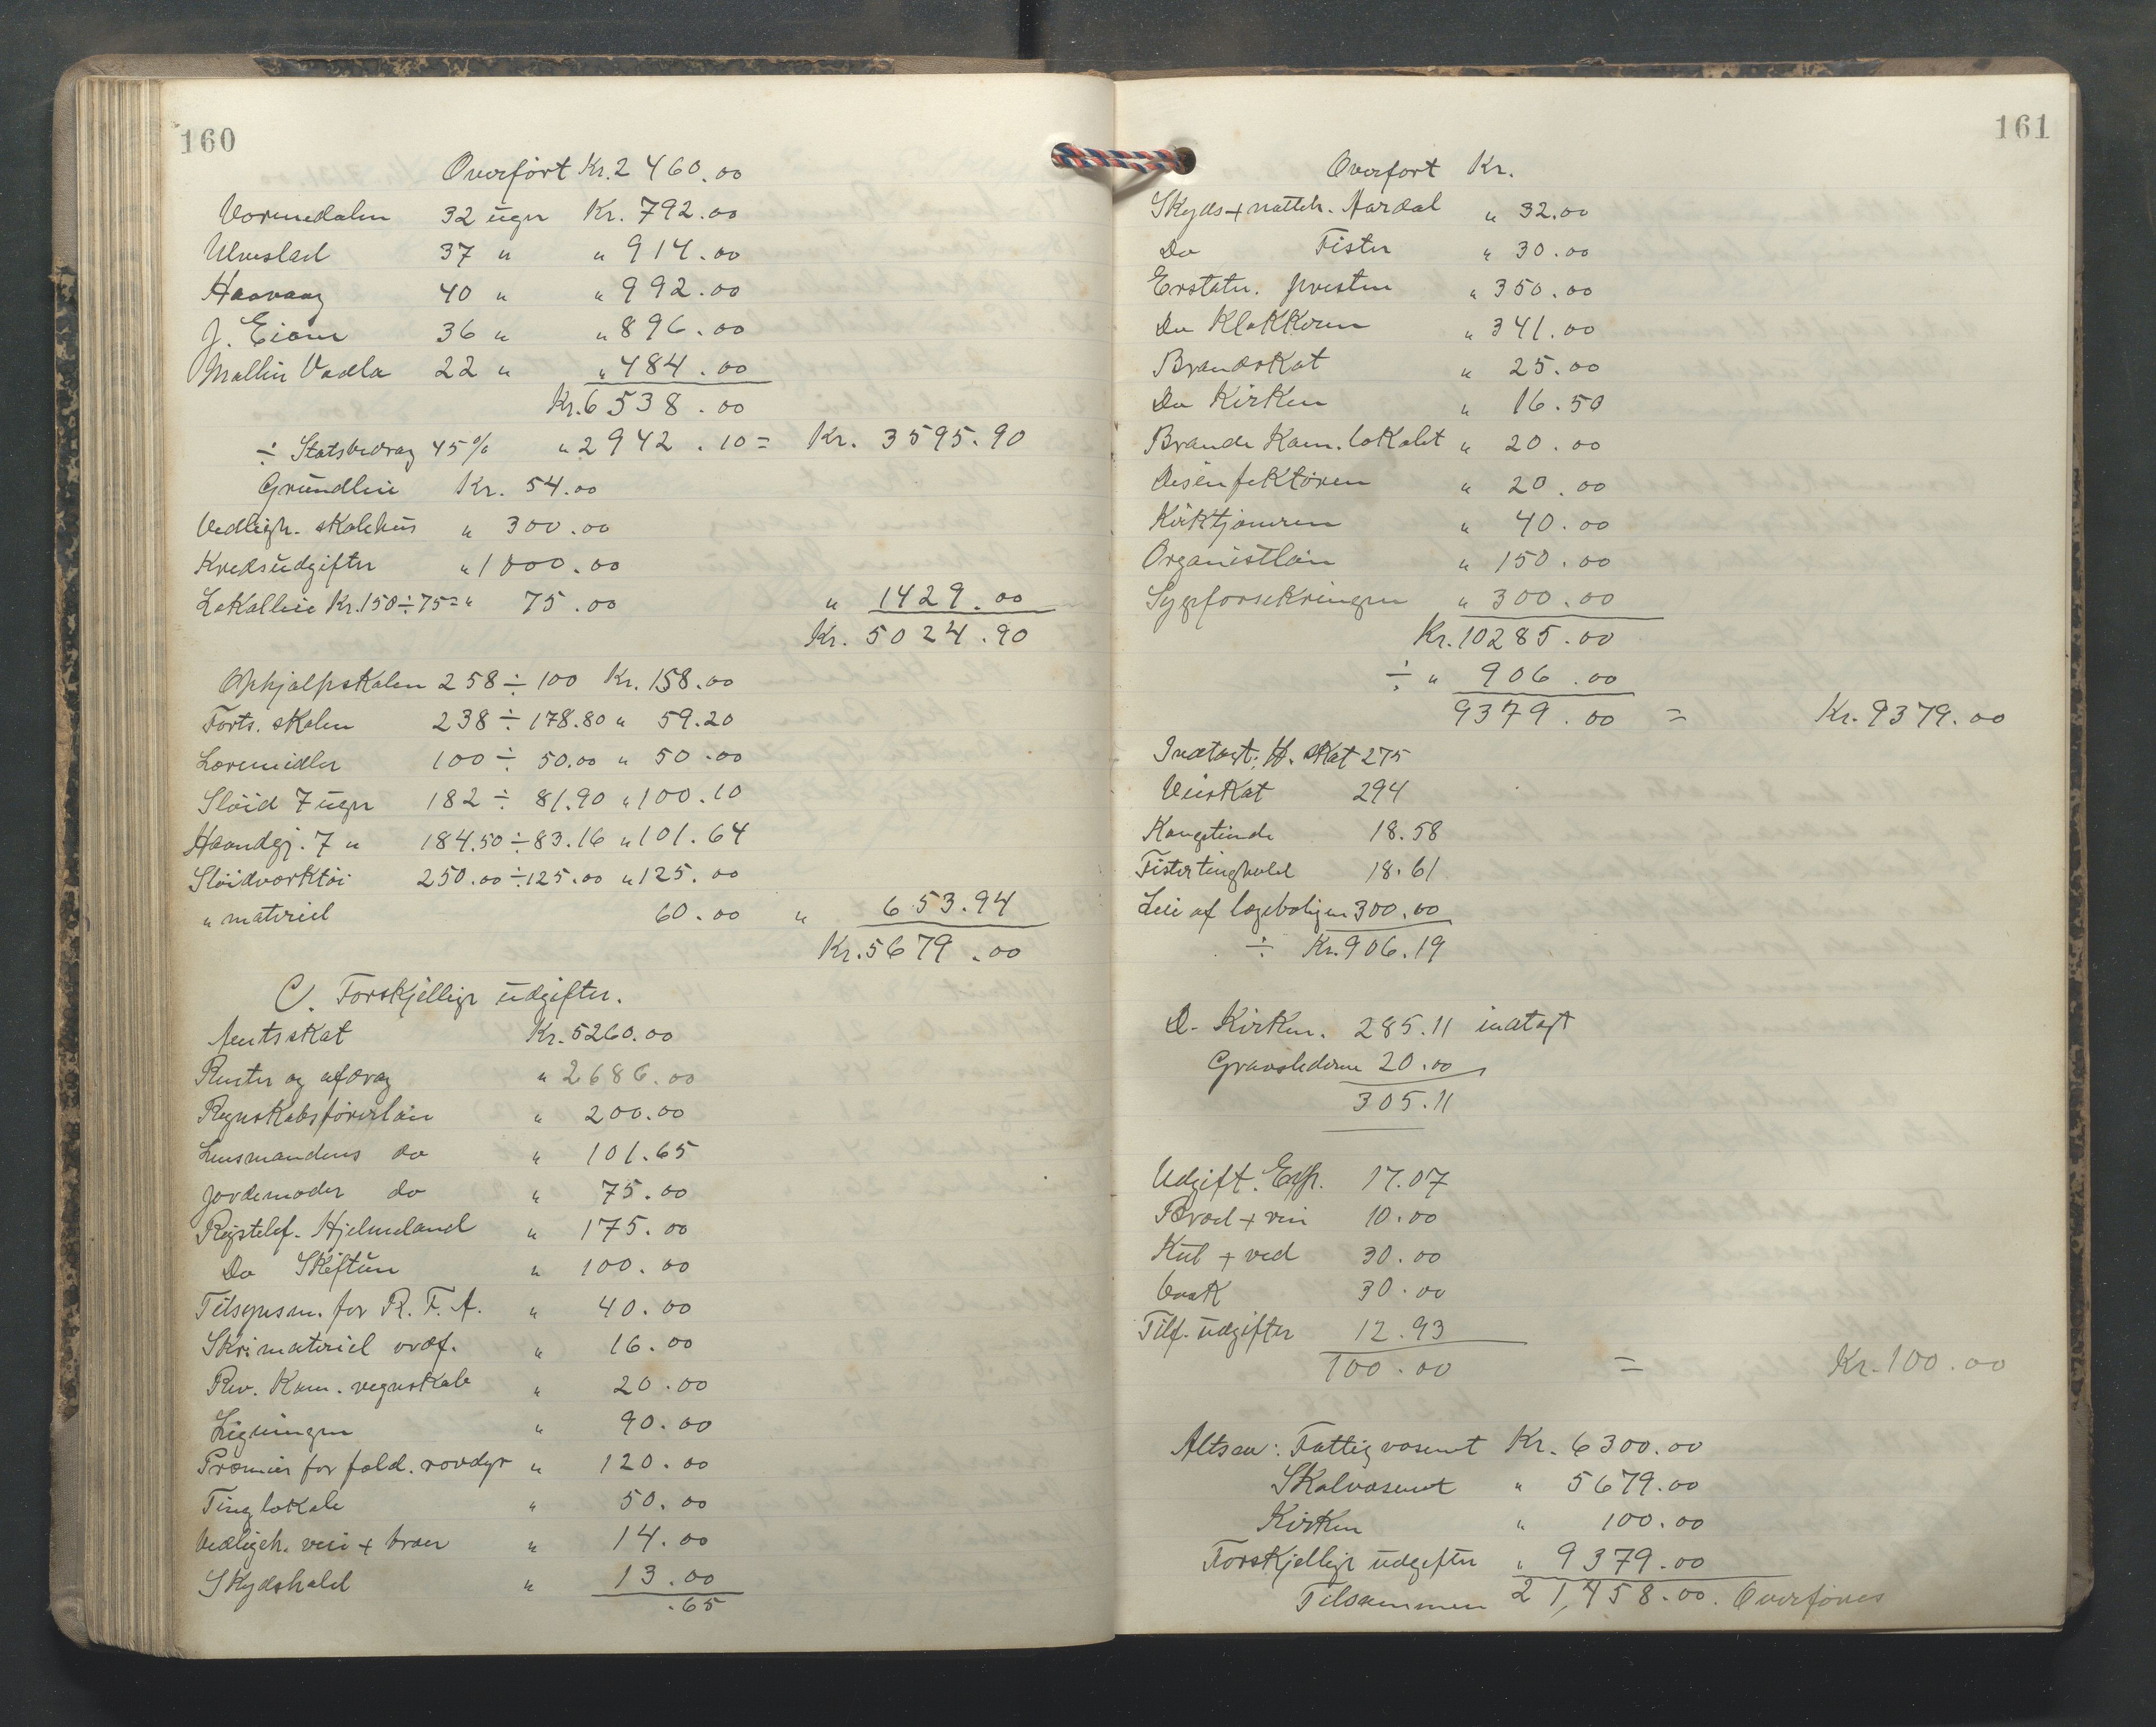 160
Overført Kr. 2460.00
Vormedalen 32 uger Kr. 792.00
Ulvuslad 37 " " 914.00
Haavaag 40 " " 992.00
J. Eiane 36 " " 896.00
Mallin Vadla 22 " " 484.00
Kr. 6538.00
÷ Statsbidrag 45% " 2942.10 = Kr. 3595.90
Grundleie Kr. 54.00
Vedligh. skolehus " 300.00
Kredsudgifter " 1000.00
Lokalleie Kr. 150÷75= " 75.00 " 1429.00
Kr. 5024.90
Ophjælpskolen 258÷100 Kr. 158.00
Forts. skolen 238÷178.80 " 59.20
Læremidler 100÷50.00 " 50.00
Sløid 7 uger 182÷81.90 " 100.10
Haandgj. 7 " 184.50÷83.16 " 101.64
Sløidværktøi 250.00÷125.00 " 125.00
" materiel 60.00 " 653.94
Kr. 5679.00
C. Forskjellige udgifter.
Amtsskat Kr. 5260.00
Renter og afdrag " 2686.00
Regnskabsførerløn " 200.00
Lensmandens do " 101.65
Jordemoder do " 75.00
Rigstelef. Hjelmeland " 175.00
Do Skiftun " 100.00
Tilsynsm. for R. F. A. " 40.00
Skr: materiel ordf. " 16.00
Rev. Kom. regnskab " 20.00
Ligningen " 90.00
Præmier for fæld. rovdyr " 120.00
Tinglokale " 50.00
Vedligeh. vei + broer " 14.00
Skydshold " 13.00
.65
161
Overført Kr.
Skyds + natteh. Aardal " 32.00
Do Fister " 30.00
Erstatn. presten " 350.00
Do Klokkeren " 341.00
Brandskat " 25.00
Do Kirken " 16.50
Brande Kom. lokalet " 20.00
Desinfektøren " 20.00
Kirktjeneren " 40.00
Organistløn " 150.00
Sygeforsekringen " 300.00
Kr. 10285.00
÷ " 906.00
9379.00 = Kr. 9379.00
Indtægt: H. skat 275
Veiskat 294
Kongetiende 18.58
Fister tinghold 18.61
Leie af lægeboligen 300.00
÷ Kr. 906.19
D. Kirken. 285.11 indtægt
Gravstederne 20.00
305.11
Udgift. Exp. 17.07
Brød + vin 10.00
Kul + ved 30.00
Vask 30.00
Tilf. udgifter 12.93
100.00 = Kr. 100.00
Altsaa: Fattigvæsenet Kr. 6300.00
Skolvæsenet " 5679.00
Kirken " 100.00
Forskjellige udgifter " 9379.00
Tilsammen 21,458.00. Overføres